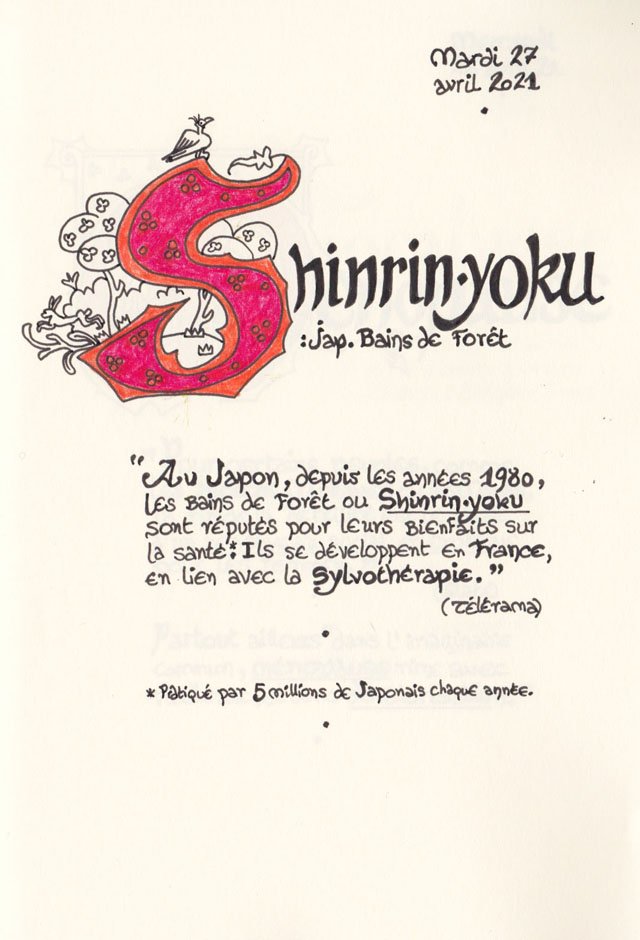 Mardi 27
avril 2021
Shinrin-yoku
: Jap. Bains de Forêt
"Au Japon, depuis les années 1980,
les Bains de Forêt ou Shinrin-yoku
sont réputés pour leurs bienfaits sur
la santé*. Ils se développent en France,
en lien avec la Sylvothérapie."
(Télérama)
* Patiqué par 5 millions de Japonais chaque année.